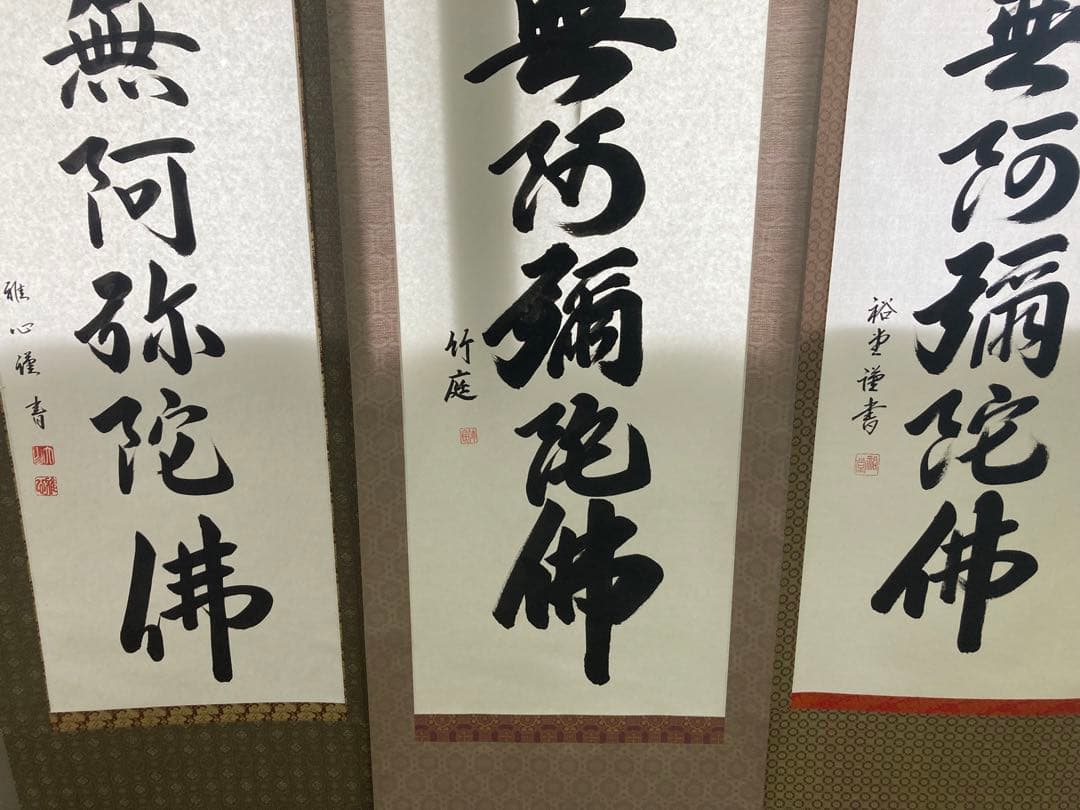 無阿弥陀佛
雅心謹書
無阿彌陀佛
竹庭
無阿彌陀佛
裕堂謹書